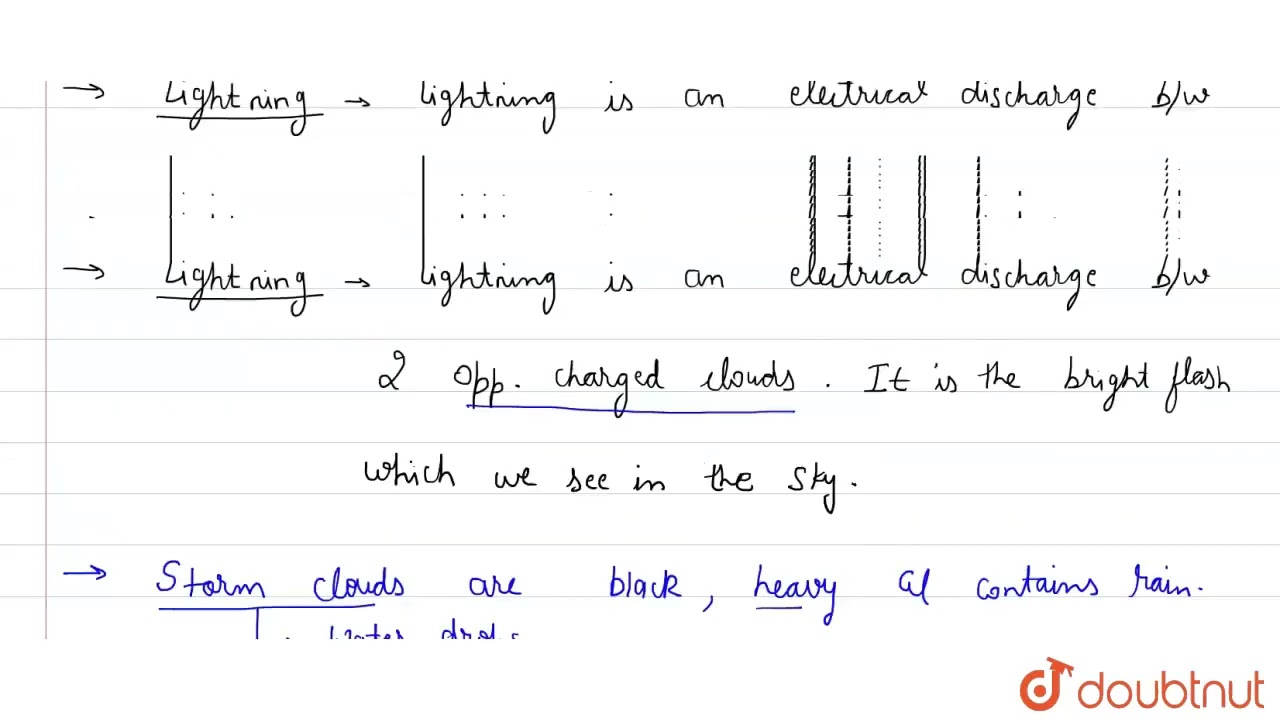 → Lightning → lightning is an electrical discharge b/w
→ Lightning → lightning is an electrical discharge b/w
2 opp. charged clouds. It is the bright flash
which we see in the sky.
→ Storm clouds are black, heavy & contains rain.
water drops
doubtnut